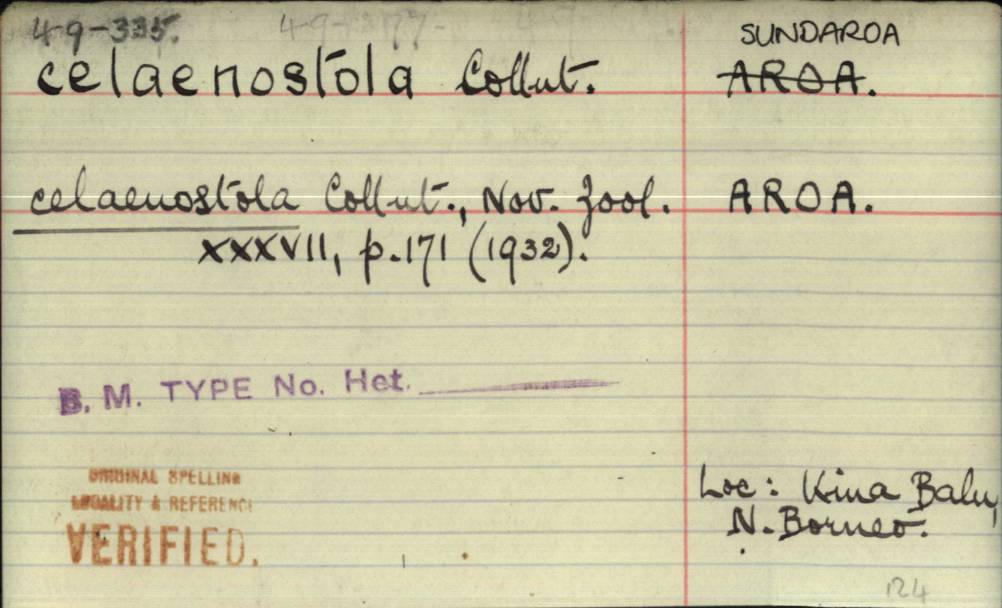 49-335.
SUNDAROA
celaenostola Collnt. AROA.
celaenostola Collnt., Nov. Zool. AROA.
XXXVII, p.171 (1932).
B. M. TYPE No. Het.
ORIGINAL SPELLING
LOCALITY & REFERENCE
VERIFIED.
Loc: Kina Balu,
N. Borneo.
124